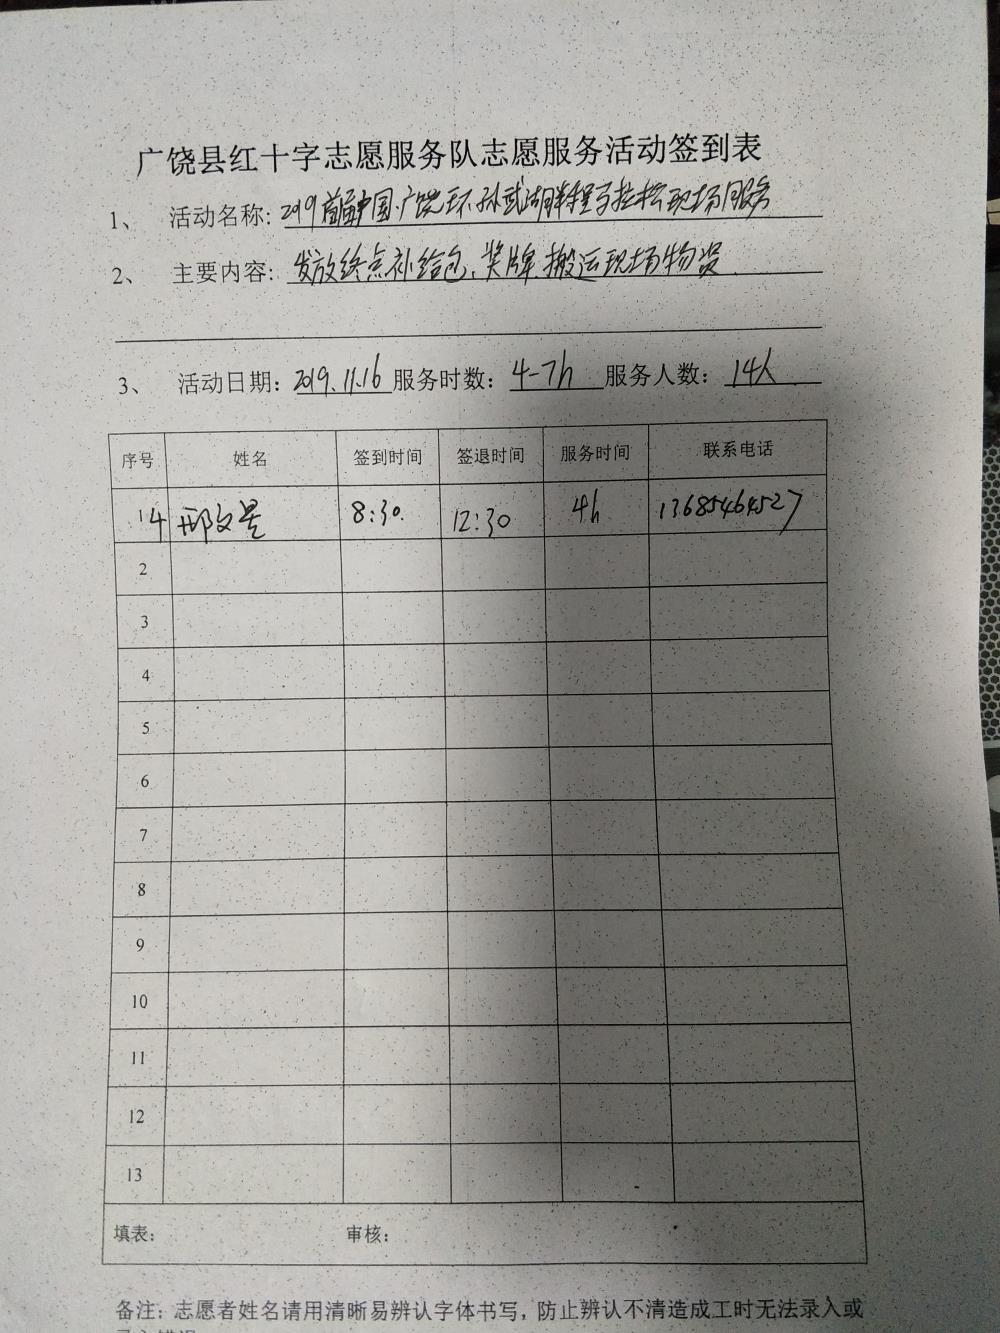 广饶县红十字志愿服务队志愿服务活动签到表
1、 活动名称: 2019首届中国·广饶环孙武湖半程马拉松现场服务
2、 主要内容: 发放终点补给包、奖牌、搬运现场物资
3、 活动日期: 2019.11.16 服务时数: 4-7h 服务人数: 14人
序号 姓名 签到时间 签退时间 服务时间 联系电话
14 邢文 8:30 12:30 4h 13685464527
2
3
4
5
6
7
8
9
10
11
12
13
填表: 审核:
备注: 志愿者姓名请用清晰易辨认字体书写，防止辨认不清造成工时无法录入或